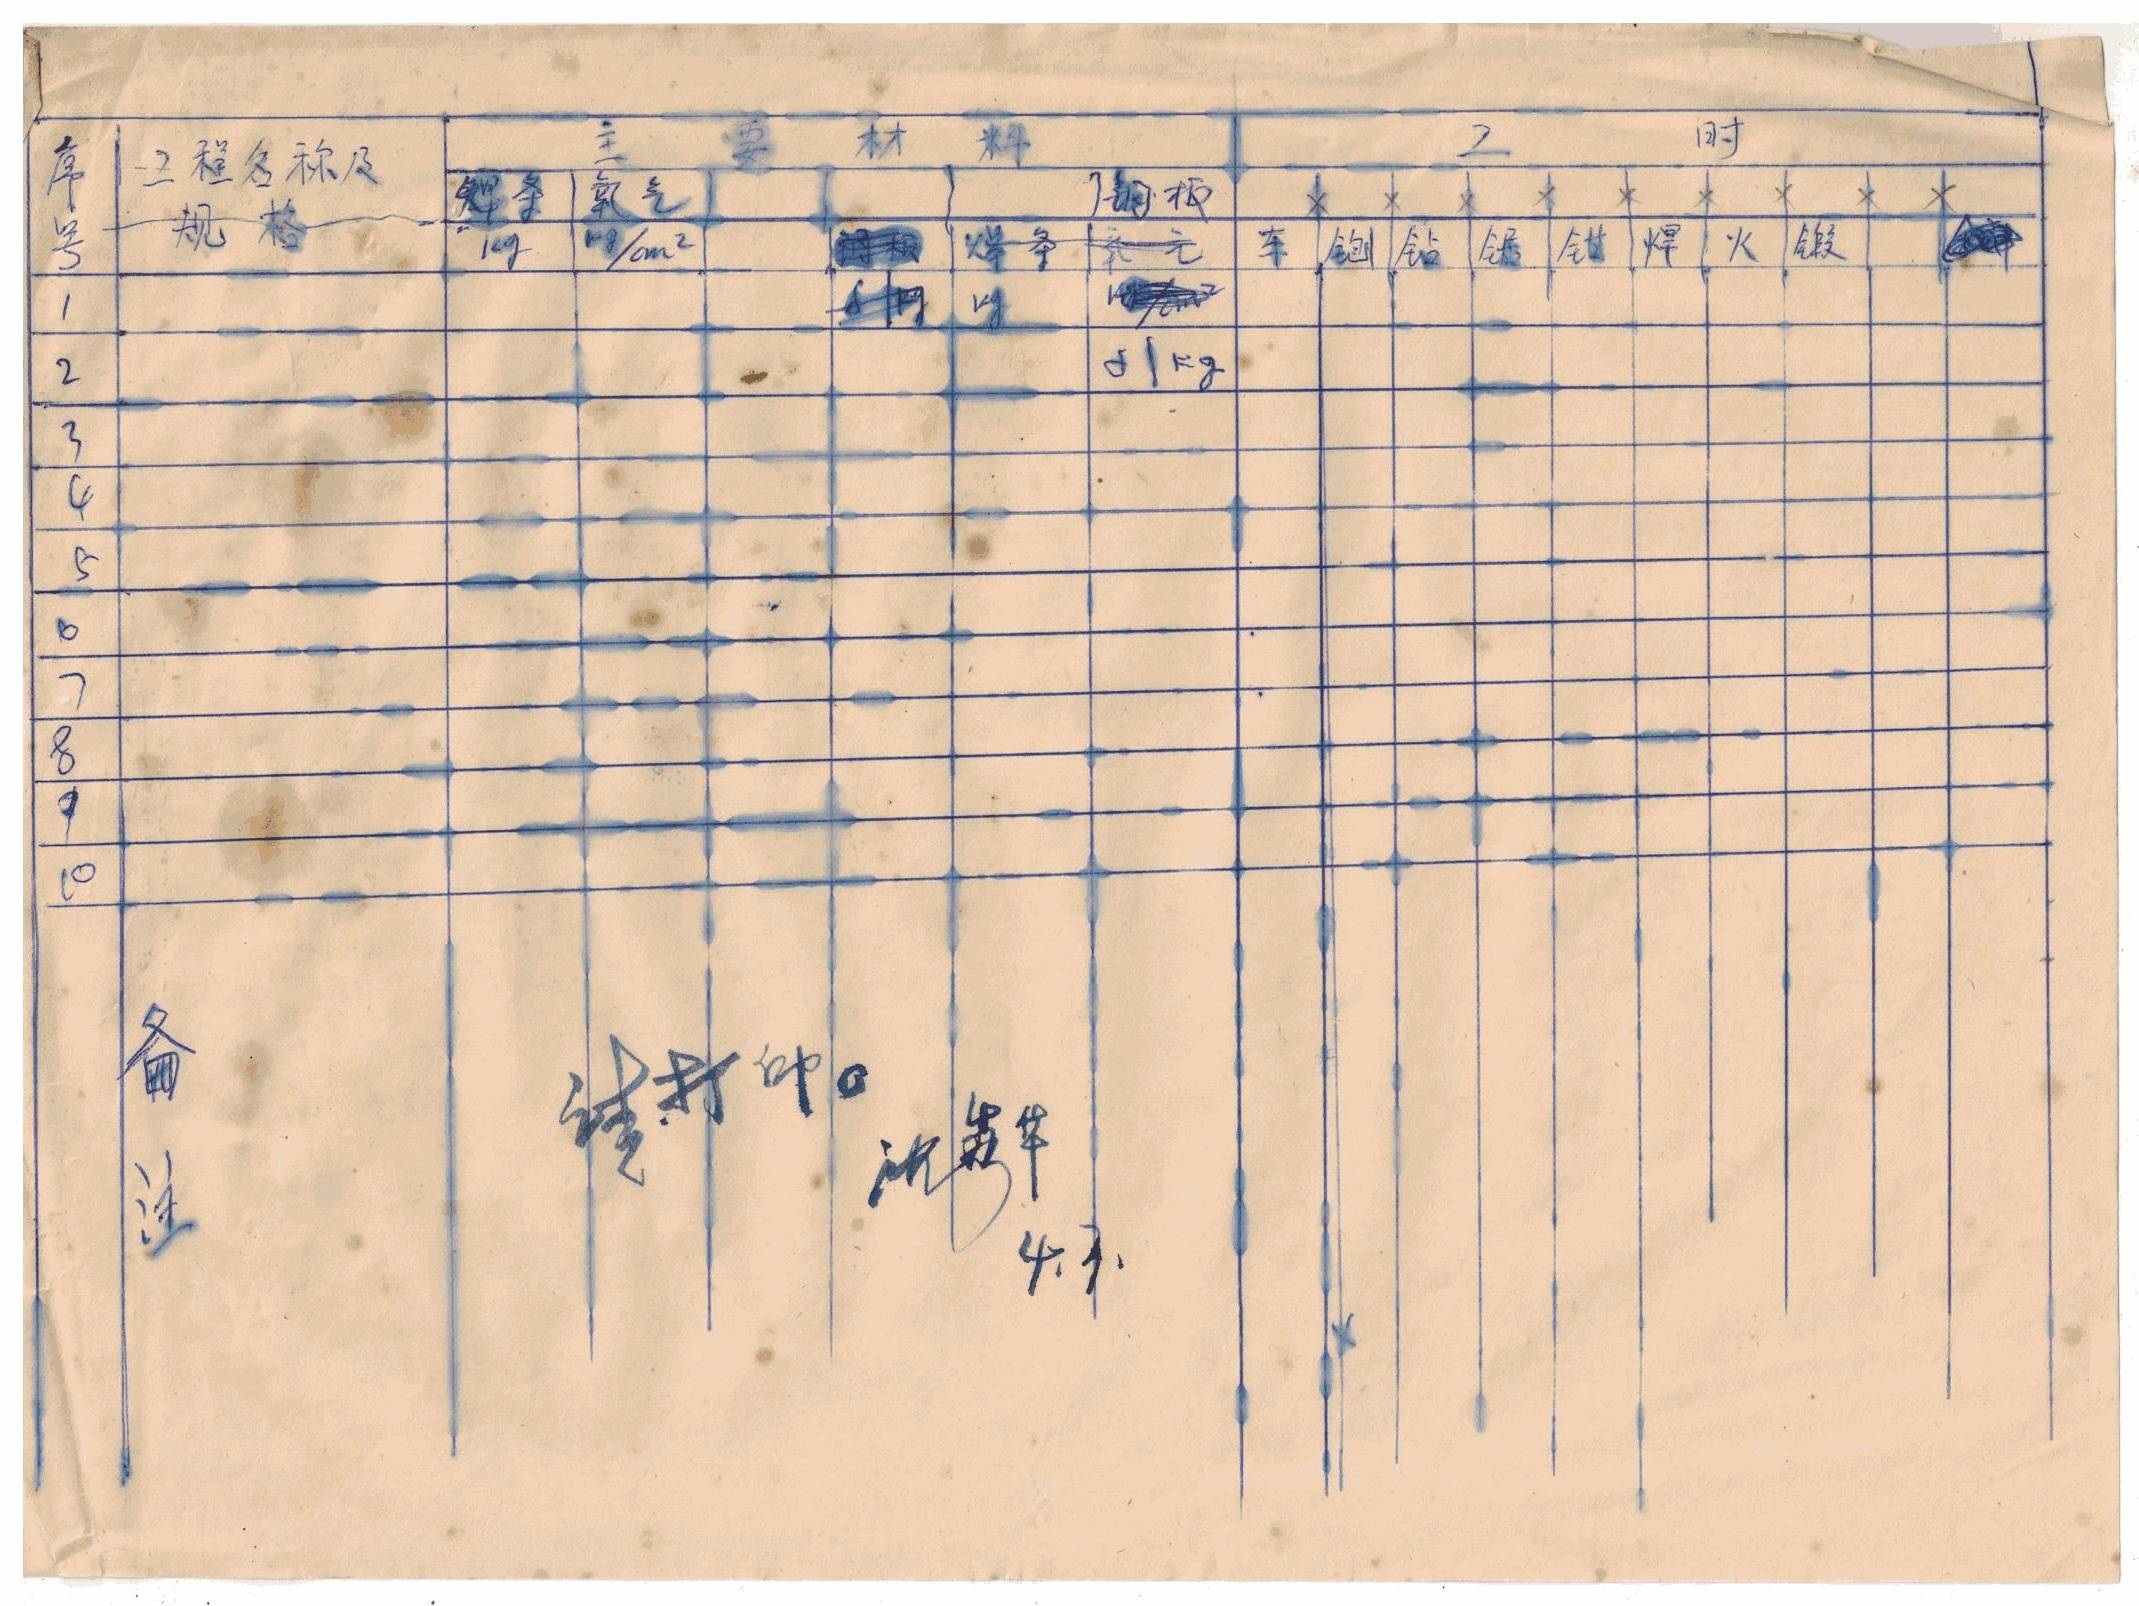 主 要 材 料 工 时
序号 工程名称及规格
焊条 氧气 钢板 × × × × × × × × ×
kg kg/cm² 焊条 车 刨 钻 锯 钳 焊 火 锻
1 kg
2 δ kg
3
4
5
6
7
8
9
10
备注
请打印。
4.